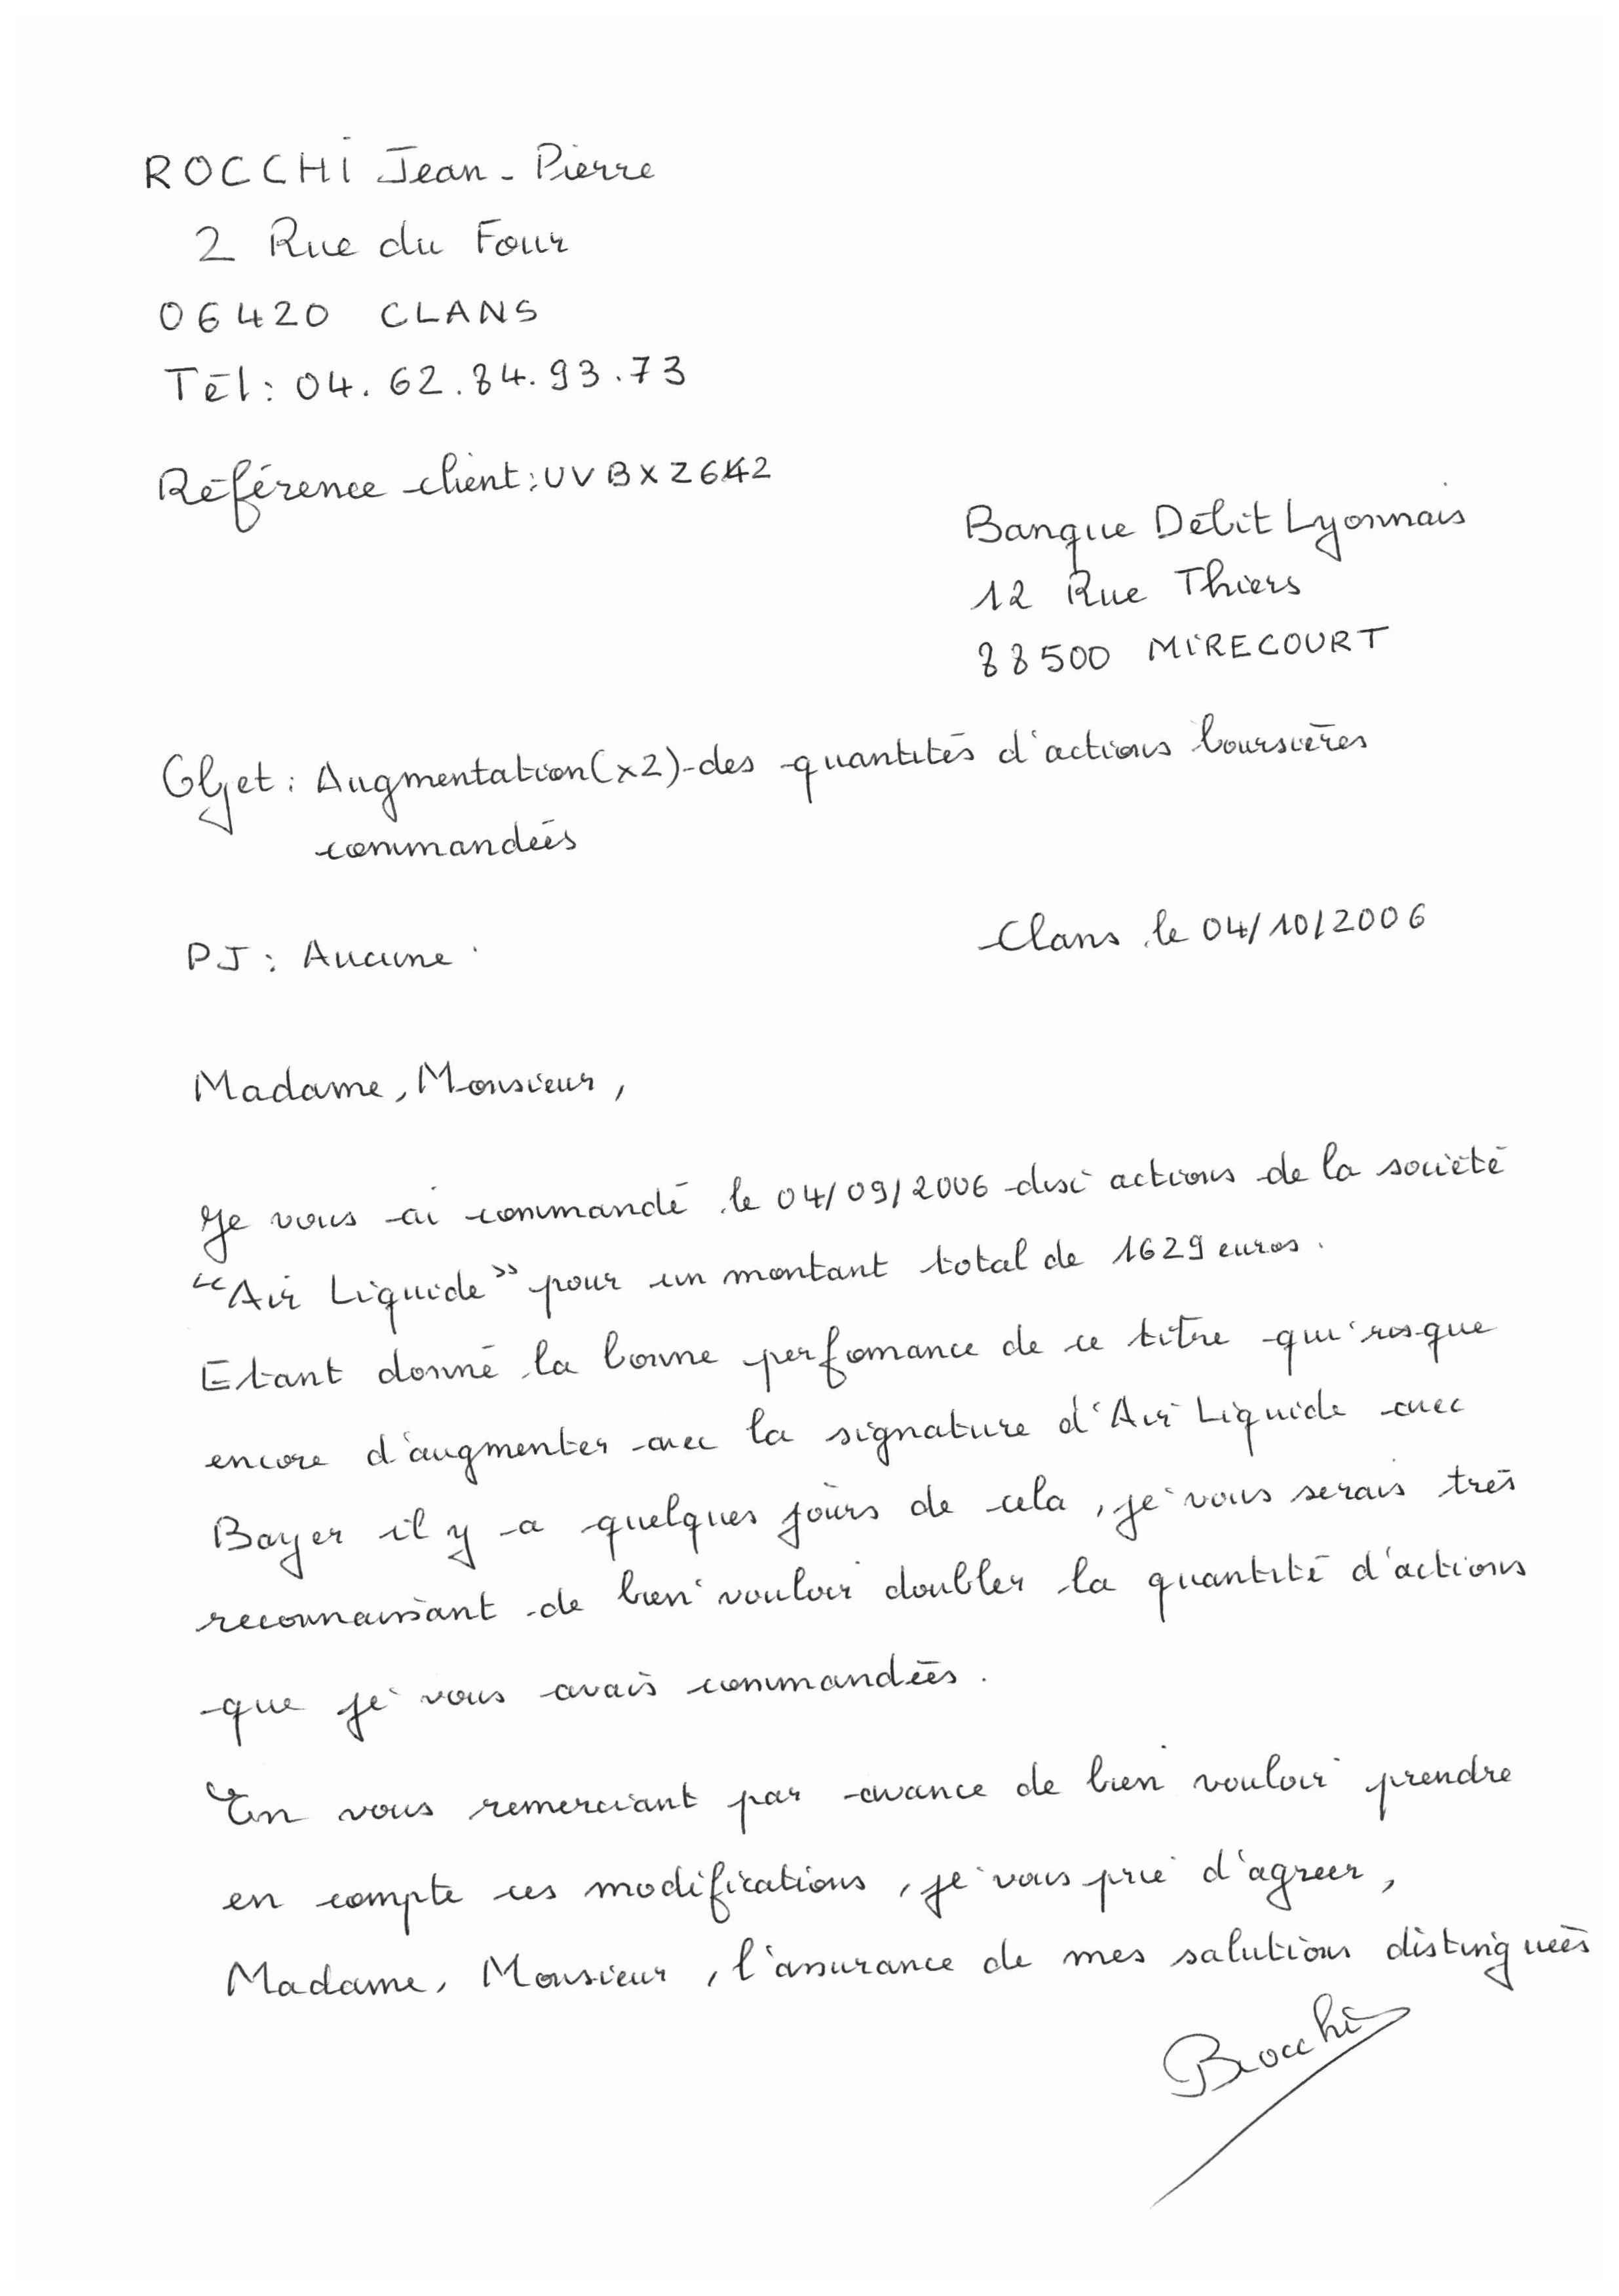 ROCCHI Jean-Pierre
2 Rue du Four
06420 CLANS
Tél: 04.62.84.93.73
Référence client: UVBXZ642
Banque Débit Lyonnais
12 Rue Thiers
88500 MIRECOURT
Objet: Augmentation (x2) des quantités d'actions boursières
commandées
Clans le 04/10/2006
PJ: Aucune.
Madame, Monsieur,
Je vous ai commandé le 04/09/2006 dix actions de la société
"Air Liquide" pour un montant total de 1629 euros.
Etant donné la bonne perfomance de ce titre qui risque
encore d'augmenter avec la signature d'Air Liquide avec
Bayer il y a quelques jours de cela, je vous serais très
reconnaissant de bien vouloir doubler la quantité d'actions
que je vous avais commandées.
En vous remerciant par avance de bien vouloir prendre
en compte ces modifications, je vous prie d'agreer,
Madame, Monsieur, l'assurance de mes salutions distinguées
Rocchi